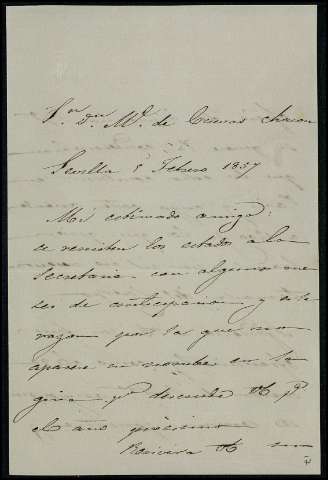 Sr. Dn. Ml. de Cuevas Chacon
Sevilla 5 Febrero 1857
Mi estimado amigo:
se remiten los estados a la
secretaria con algunos me
ses de anticipacion y esta
razon por la que no
aparece su nombre en la
gina pa
el año proximo